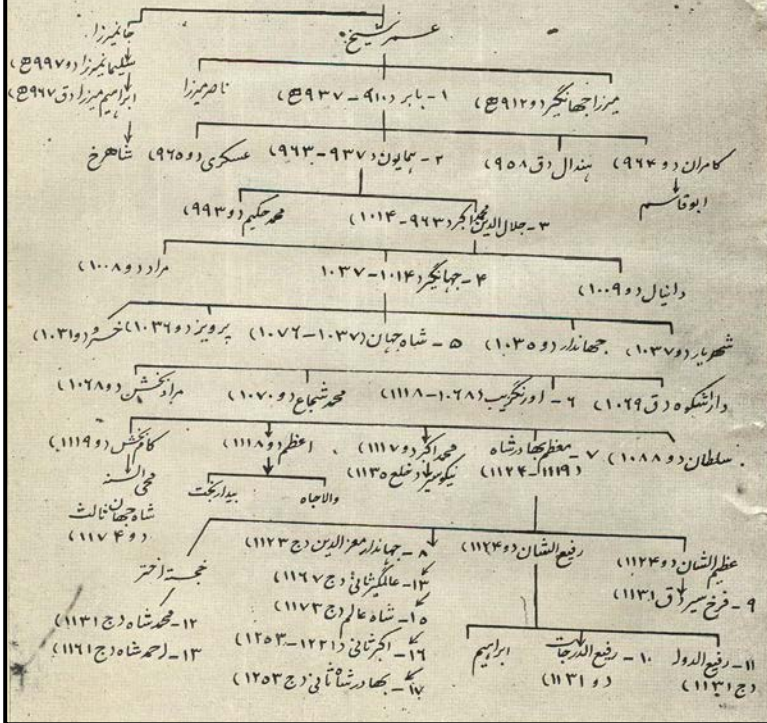 عمر شیخ
خانمیرزا
سلیمانمیرزا (و ۹۹۷ھ)
ابراهیم میرزا (ق ۹۶۷ھ)
شاهرخ
میرزا جهانگیر (و ۹۱۲ھ)
۱- بابر (۹۱۰ - ۹۳۷ھ)
ناصر میرزا
کامران (و ۹۶۴)
ابوقاسم
هندال (ق ۹۵۸)
۲- همایون (۹۳۷ - ۹۶۳)
عسکری (و ۹۶۵)
۳- جلال الدین محمد اکبر (۹۶۳ - ۱۰۱۴)
محمد حکیم (و ۹۹۳)
دانیال (و ۱۰۰۹)
۴- جهانگیر (۱۰۱۴ - ۱۰۳۷
مراد (و ۱۰۰۸)
شهریار (و ۱۰۳۷)
جهاندار (و ۱۰۳۵)
۵- شاه جهان (۱۰۳۷ - ۱۰۷۶)
پرویز (و ۱۰۳۶)
خسرو (و ۱۰۳۱)
داراشکوه (ق ۱۰۶۹)
۶- اورنگزیب (۱۰۶۸ - ۱۱۱۸)
محمد شجاع (و ۱۰۷۰)
مراد بخش (و ۱۰۶۸)
سلطان (و ۱۰۸۸)
۷- معظم بهادر شاه
(۱۱۱۹ - ۱۱۲۴)
محمد اکبر (و ۱۱۱۷)
نیکوسیر (خلع ۱۱۳۵)
اعظم (و ۱۱۱۸)
والاجاه
بیدار بخت
کام بخش (و ۱۱۱۹)
محی السنه
شاه جهان ثالث
(و ۱۱۷۴)
عظیم الشان (و ۱۱۲۴)
۹- فرخ سیر (ق ۱۱۳۱)
رفیع الشان (و ۱۱۲۴)
۸- جهاندار معزالدین (ج ۱۱۲۳)
۱۳- عالمگیر ثانی (ج ۱۱۶۷)
۱۵- شاه عالم (ج ۱۱۷۳)
۱۶- اکبر ثانی (۱۲۲۱ - ۱۲۵۳)
۱۷- بهادر شاه ثانی (ج ۱۲۵۳)
خجسته اختر
۱۲- محمد شاه (ج ۱۱۳۱)
۱۳- احمد شاه (ج ۱۱۶۱)
۱۱- رفیع الدوله
(ج ۱۱۳۱)
۱۰- رفیع الدرجات
(و ۱۱۳۱)
ابراهیم